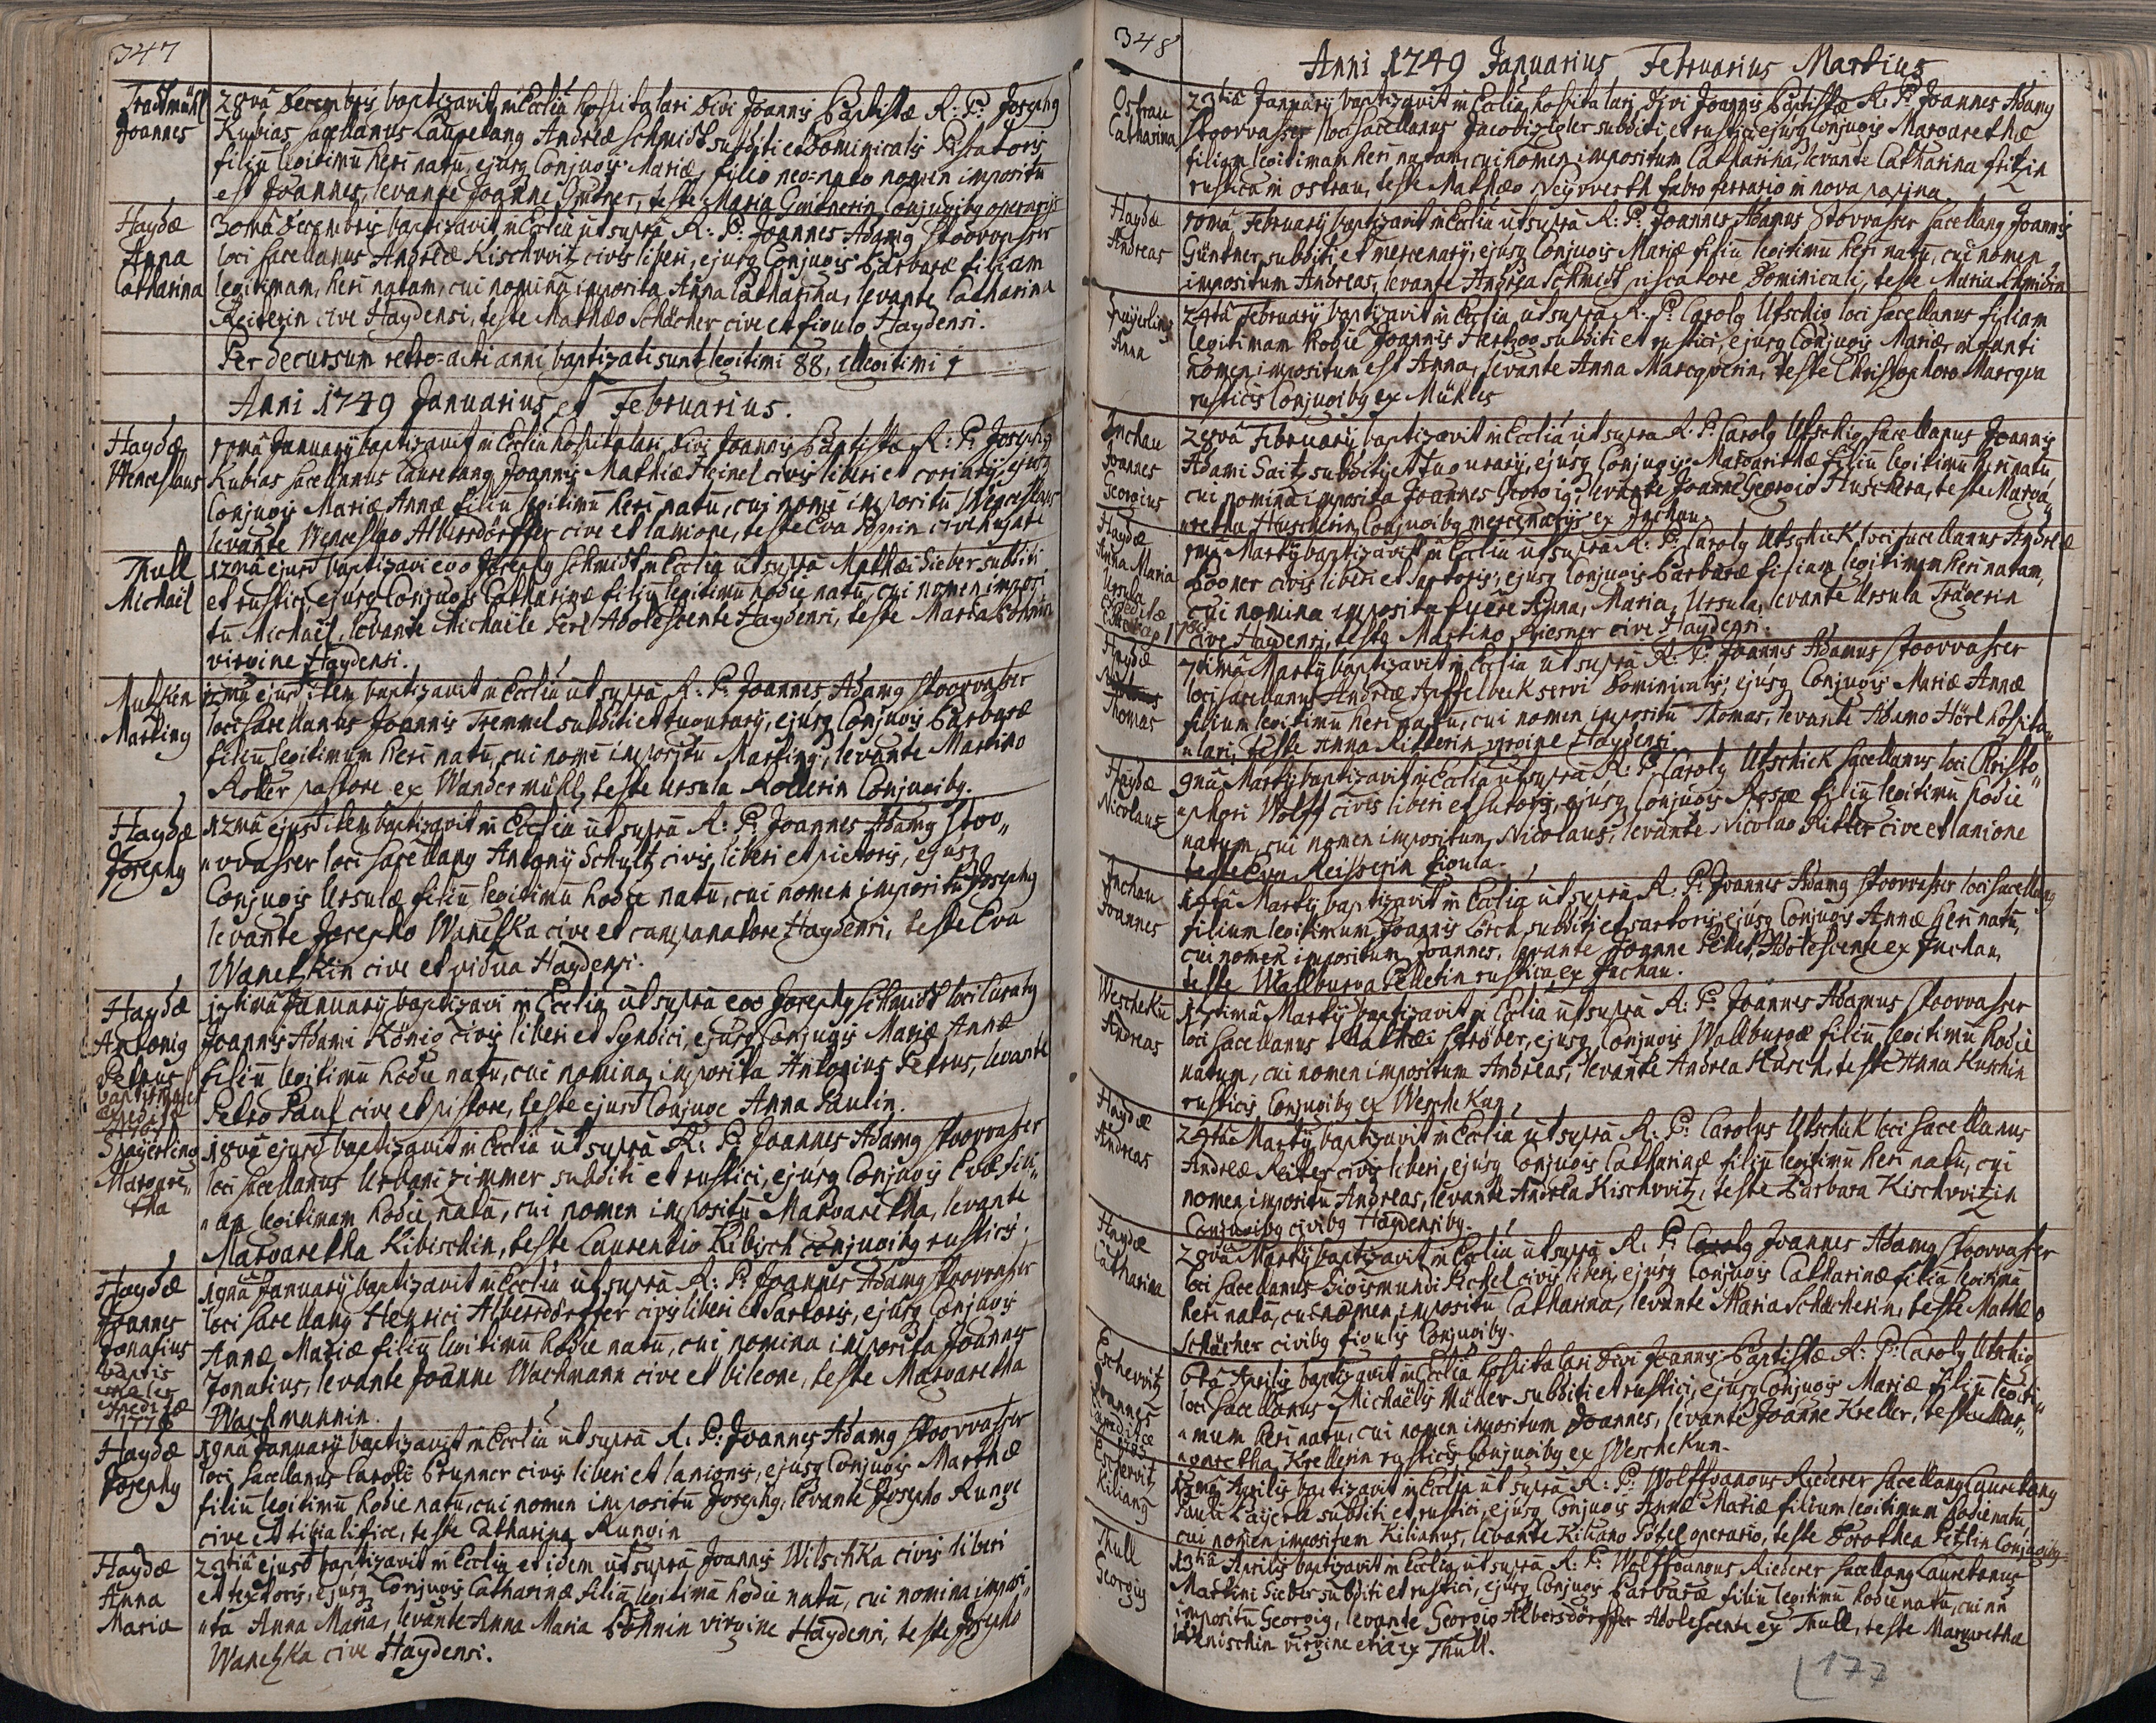 347
Joannes
28va Decembris baptizavit in Ecclia hospitalari Divi Joannis Baptistæ R: P: Josephg
Kubias sacellanus Lauretang Andreæ Schmidt subditi et Dominicalis Piscatoris
filiũ legitimũ heri natu, ejusq Conjugis Mariæ, filio neo-nato nomen impositũ
est Joannes, levante Joanne Gintner, teste Maria Conjugibg
Haydæ
Anna
Catharina
30ma Decembris baptizavit in Ecclia ut supra R: P: Joannes Adamg Stoorvasser
loci sacellanus Andreæ Kischwitz civis liberi, ejusq Conjugis Barbaræ filiam
legitimam, heri natam, cui nomina imposita Anna Catharina, levante Catharina
Reiterin cive Haydensi, teste Mathæo Schächer cive et figulo Haydensi.
Per decursum retro-acti anni baptizati sunt legitimi 88, illegitimi 1
Anni 1749 Januarius et Februarius.
Haydæ
Wenceslaus
Januarij baptizavit in Ecclia hospitalari Divi Joannis Baptistæ R: P: Josephg
Kubias sacellanus Lauretang Joannis Mathiæ Heinel civis liberi et coriarij, ejusq
Conjugis Mariæ Annæ filiũ legitimũ heri natu, cui nomẽ impositũ Wenceslaus
levante Wenceslao Albersdörffer cive et lanione, teste Eva
Thull
Michaël
12ma ejusd baptizavi ego Josephg Schmidt in Ecclia ut supra Mathæi Sieber subditi
et rustici, ejusq Conjugis Catharinæ filiũ legitimũ hodie natu, cui nomen imposi
tũ Michaël, levante Michaële Perl Adolescente Haydensi, teste Maria
virgine Haydensi.
Marting
12ma ejusd item baptizavit in Ecclia ut supra R: P: Joannes Adamg Stoorvasser
loci sacellanus Joannis Tremmel subditi et tugurarij, ejusq Conjugis Barbaræ
filiũ legitimum heri natu, cui nomẽ impositũ Marting, levante Martino
Roller pastore ex Wandermühl, teste Ursula Rollerin Conjugibg.
Haydæ
Josephg
12ma ejusd item baptizavit in Ecclia ut supra R: P: Joannes Adamg Stoo„
„rvasser loci sacellang Antonij Schultz civis liberi et pictoris, ejusq
Conjugis Ursulæ filiũ legitimũ hodie natu, cui nomen impositũ Josephg
levante Josepho Wanetzka cive et campanatore Haydensi, teste Eva
Wanetzkin cive et vidua Haydensi.
Haydæ
Antonig
Petrus
17tima Januarij baptizavi in Ecclia ut supra ego Josephg Schmidt loci Curatg
Joannis Adami König civis liberi et Syndici, ejusq Conjugis Mariæ Annæ
filiũ legitimũ hodie natu, cui nomina imposita Antonius Petrus, levante
Petro Paul cive et pistore, teste ejusd Conjuge Anna Paulin.
Spayerling
Margare„
tha
18va ejusd baptizavit in Ecclia ut supra R: P: Joannes Adamg Stoorvasser
loci sacellanus Urbani Zimmer subditi et rustici, ejusq Conjugis Evæ fili„
„am legitimam hodie natã, cui nomen impositũ Margaretha, levante
Margaretha Kibischin, teste Laurentio Kibisch conjugibg rusticis.
Haydæ
Joannes
Ignatius
19na Januarij baptizavit in Ecclia ut supra R: P: Joannes Adamg Stoorvasser
loci sacellang Henrici Albersdörffer civis liberi et sartoris, ejusq Conjugis
Annæ Mariæ filiũ legitimũ hodie natu, cui nomina imposita Joannes
Ignatius, levante Joanne Wachmann cive et bileone, teste Margaretha
Wachmannin.
Haydæ
Josephg
19na Januarij baptizavit in Ecclia ut supra R: P: Joannes Adamg Stoorvasser
loci sacellanus Caroli Brunner civis liberi et lanionis, ejusq Conjugis Marthæ
filiũ legitimũ hodie natu, cui nomen impositũ Josephg, levante Josepho Runge
cive et tibialifice, teste Catharina Rungin
Haydæ
Anna
Maria
23tia ejusd baptizavit in Ecclia et idem ut supra Joannis Witschka civis liberi
et textoris, ejusq Conjugis Catharinæ filiã legitimã hodie natã, cui nomina imposi„
„ta Anna Maria, levante Anna Maria Böhmin virgine Haydensi, teste Josepho
Wanetzka cive Haydensi.
348
Anni 1749 Januarius Februarius Martius
Ostrau
Catharina
23tia Januarij baptizavit in Ecclia hospitalari Divi Joannis Baptistæ R: P: Joannes Adamg
Stoorvasser loci sacellanus Jacobi Zigler subditi et rustici, ejusq Conjugis Margarethæ
filiam legitimam heri natam, cui nomen impositum Catharina, levante Catharina Fritzin
rustica in Ostrau, teste Mathæo Neywerth fabro ferrario in nova
Haydæ
Andreas
Februarij baptizavit in Ecclia ut supra R: P: Joannes Adamus Stoorvasser sacellang Joannis
Güntner subditi et mercenarij, ejusq Conjugis Mariæ filiũ legitimũ heri natu, cui nomen
impositum Andreas, levante Andrea Schmidt piscatore Dominicali, teste Maria Schmidin
Spayerling
Anna
24ta Februarij baptizavit in Ecclia ut supra R: P: Carolg Utschig loci sacellanus filiam
legitimam hodie Joannis Hertzog subditi et rustici, ejusq Conjugis Mariæ, infanti
nomen impositum est Anna, levante Anna Marcqverin, teste Christophoro Marcqva
rusticis Conjugibg ex Mühles
Inchau
Joannes
Georgius
28va Februarij baptizavit in Ecclia ut supra R: P: Carolg Utschig sacellanus Joannis
Adami Saitz subditi et Tugurarij, ejusq Conjugis Margarithæ filiũ legitimũ heri natu,
cui nomina imposita Joannes Georgig, levante Joanne Georgio Huschera, teste Marga„
„retha Huscherin Conjugibg mercenarijs ex Inchau.
Haydæ
Anna Maria
Ursula
Martij baptizavit in Ecclia ut supra R: P: Carolg Utschick loci sacellanus Andreæ
Bogner civis liberi et sartoris, ejusq Conjugis Barbaræ filiam legitimam heri natam,
cui nomina imposita fuere Anna, Maria, Ursula, levante Ursula Trägerin
cive Haydensi, teste Martino Riesner cive Haydensi.
Haydæ
Thomas
7tima Martij baptizavit in Ecclia ut supra R: P: Joannes Adamus Stoorvasser
loci sacellanus Andreæ Apffelbeck servi Dominicalis, ejusq Conjugis Mariæ Annæ
filium legitimũ heri natu, cui nomen impositũ Thomas, levante Adamo Hörl hospita„
„lari, teste Anna Ritterin virgine Haydensi.
Haydæ
Nicolaus
9na Martij baptizavit in Ecclia ut supra R: P: Carolg Utschick sacellanus loci Christo„
„phori Wolff civis liberi et sutoris, ejusq Conjugis Rosæ filiũ legitimũ hodie
natum, cui nomen impositum Nicolaus, levante Nicolao Ritter cive et lanione
teste Eva Reisserin figula.
Inchau
Joannes
Martij baptizavit in Ecclia ut supra R: P: Joannes Adamg Stoorvasser loci sacellang
filium legitimum Joannis Lorch subditi et sartoris, ejusq Conjugis Annæ heri natu,
cui nomen impositum Joannes, levante Joanne Pellet, Adolescente ex Inchau,
teste Wallburga Pelletin rustica ex Inchau.
Weschekũ
Andreas
17tima Martij baptizavit in Ecclia ut supra R: P: Joannes Adamus Stoorvasser
loci sacellanus Mathæi Ströber, ejusq Conjugis Wallburgæ filiũ legitimũ hodie
natum, cui nomen impositum Andreas, levante Andrea Kusch, teste Anna Kuschin
rusticis Conjugibg ex Weschekun.
Haydæ
Andreas
Martij baptizavit in Ecclia ut supra R: P: Carolus Utschick loci sacellanus
Andreæ Reiter civis liberi, ejusq Conjugis Catharinæ filiũ legitimũ heri natu, cui
nomen impositũ Andreas, levante Andrea Kischwitz, teste Barbara Kischwitzin
Conjugibg civibg Haydensibg.
Haydæ
Catharina
28va Martij baptizavit in Ecclia ut supra R: P: Carolg Joannes Adamg Stoorvasser
loci sacellanus Sigismundi Pechel civis liberi, ejusq Conjugis Catharinæ filiã legitimã
heri natã, cui nomen impositũ Catharina, levante Maria Schächerin, teste Mathæo
Schächer civibg figulis Conjugibg.
Eschewitz
Joannes
6ta Aprilis baptizavit in Ecclia hospitalari Divi Joannis Baptistæ R: P: Carolg Utschig
loci sacellanus Michaëlis Müller subditi et rustici, ejusq Conjugis Mariæ filiũ legiti„
„mum heri natu, cui nomen impositum Joannes, levante Joanne Kreller, teste Mar„
„garetha Krellerin rusticis Conjugibg ex Weschekun.
Eschewitz
Kiliang
Aprilis baptizavit in Ecclia ut supra R: P: Wolffgangus Riederer sacellang Lauretang
Pauli subditi et rustici, ejusq Conjugis Annæ Mariæ filium legitimum hodie natu,
cui nomen impositum Kilianus, levante Kiliano operario, teste Dorothea Conjugibg
Thull
Georgig
13tia Aprilis baptizavit in Ecclia ut supra R: P: Wolffgangus Riederer sacellang Lauretanus
Martini Sieber subditi et rustici, ejusq Conjugis Barbaræ filiũ legitimũ hodie natu, cui
impositũ Georgig, levante Georgio Albersdörffer Adolescente ex Thull, teste Margaretha
virgine etia ex Thull.
177